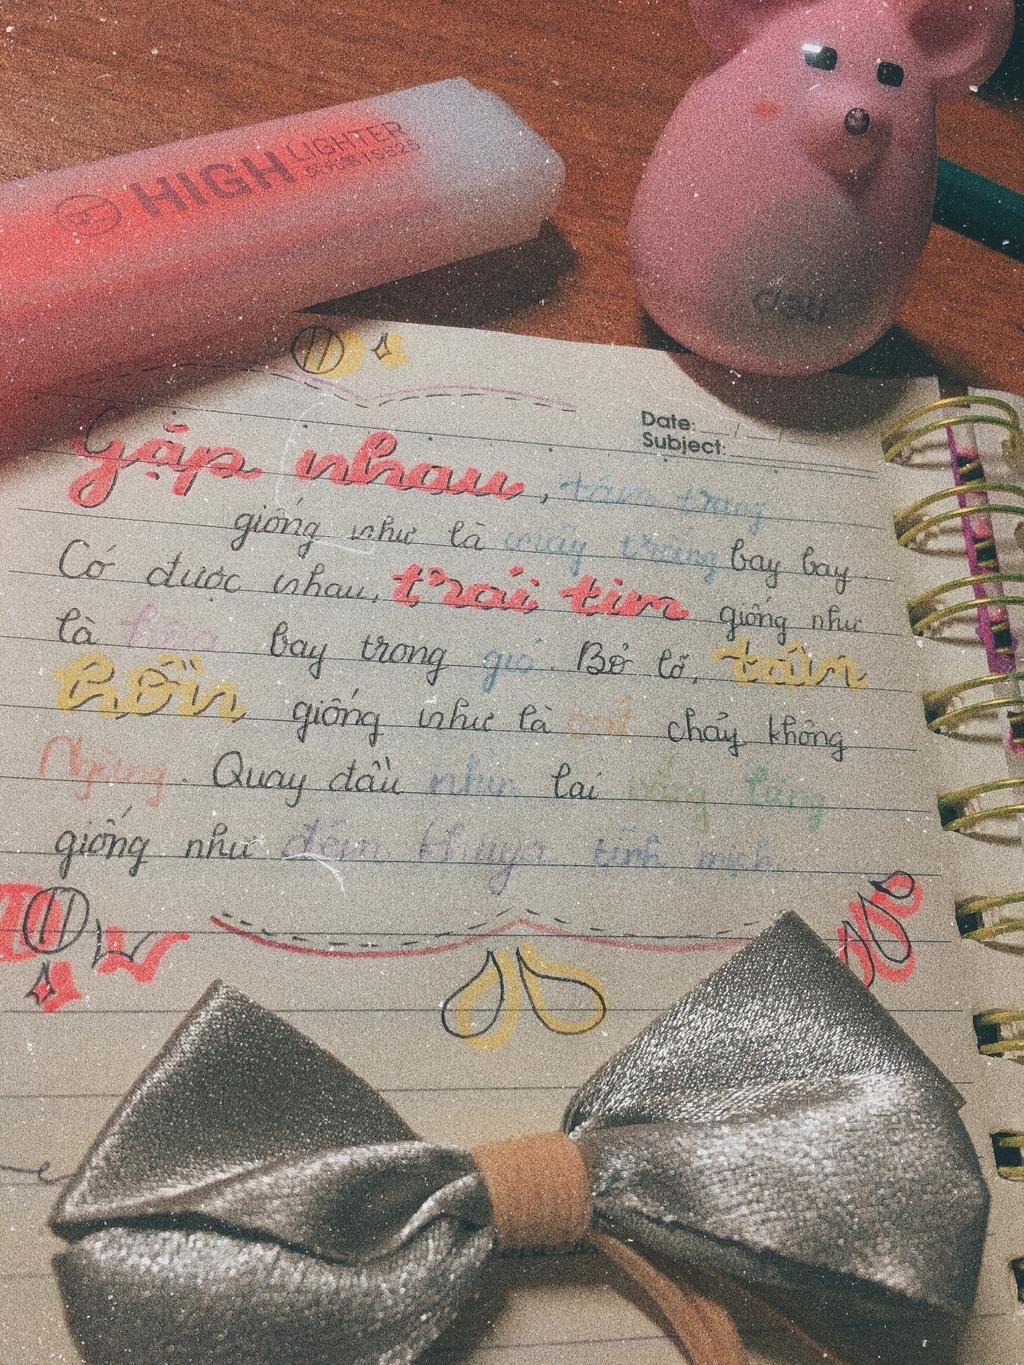 HIGHLIGHTER
deli
Date: __/__/
Subject:
Gặp nhau, tâm trạng
giống như là mây trắng bay bay
Có được nhau, trái tim giống như
là hoa bay trong gió. Bỏ lỡ, tâm
hồn giống như là cát chảy không
Ngừng. Quay đầu nhìn lại bằng lặng
giống như đêm khuya tĩnh mịch.